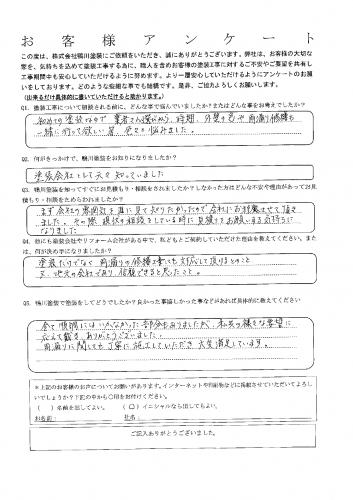 お客様アンケート
この度は、株式会社鴨川塗装にご依頼をいただき、誠にありがとうございます。弊社は、お客様の大切な
家を、気持ちを込めて塗装工事する為に、職人を含めお客様の塗装工事に対するご不安やご要望を共有し
工事期間中も安心していただけるように努めます。より一層安心していただけるようにアンケートのお願
いをしております。どのような些細な事でも結構です。是非、ご協力よろしくお願いします。
(出来るだけ具体的に書いていただけると助かります。)
Q1. 塗装工事について相談される前に、どんな事で悩んでいましたか?またはどんな事をお考えでしたか?
初めての塗装なので業者さん選びから、時期、外壁の色や雨漏り修繕も
一緒に行って欲しい等、色々と悩みました。
Q2. 何がきっかけで、鴨川塗装をお知りになりましたか?
塗装会社として元々知っていました
Q3. 鴨川塗装を知ってすぐにお見積もり・相談をされましたか?しなかった方はどんな不安や理由があってお見
積もり・相談をためらわれましたか?
まず会社の雰囲気を直に見て知りたかったので会社にお邪魔させて頂き
ました。その際、現状の相談をしている時に見積りてお願いする気持ちに
なりました
Q4. 他にも塗装会社やリフォーム会社がある中で、私どもとご契約していただけた理由を教えてください。また
は、何が決め手になりましたか?
塗装だけでなく、雨漏りの修繕工事にも対応して頂けるとのこと
又、地元の会社であり、信頼できると思ったこと。
Q5. 鴨川塗装で塗装をしてどうでしたか?良かった事嬉しかった事などがあれば具体的に教えてください
全て順調にはいかなかった部分もありましたが、私共の様々な要望に
応えて戴き、ありがとうございました。
雨漏りに関しても丁寧に施工していただき大変満足しています。
*上記のお客様のお声についてお願いがあります。インターネットや印刷物などに掲載させていただいてよろし
いでしょうか?下記の中から○印をお付けください。
( )名前を出してよい。 (○)イニシャルなら出してもよい。
お名前: 社名:
ご記入ありがとうございました